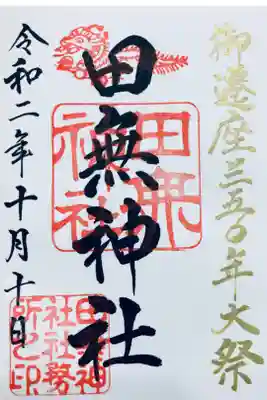 御遷座三五〇年大祭
田無神社
田無神社
令和二年十月十日
田無神社社務所之印